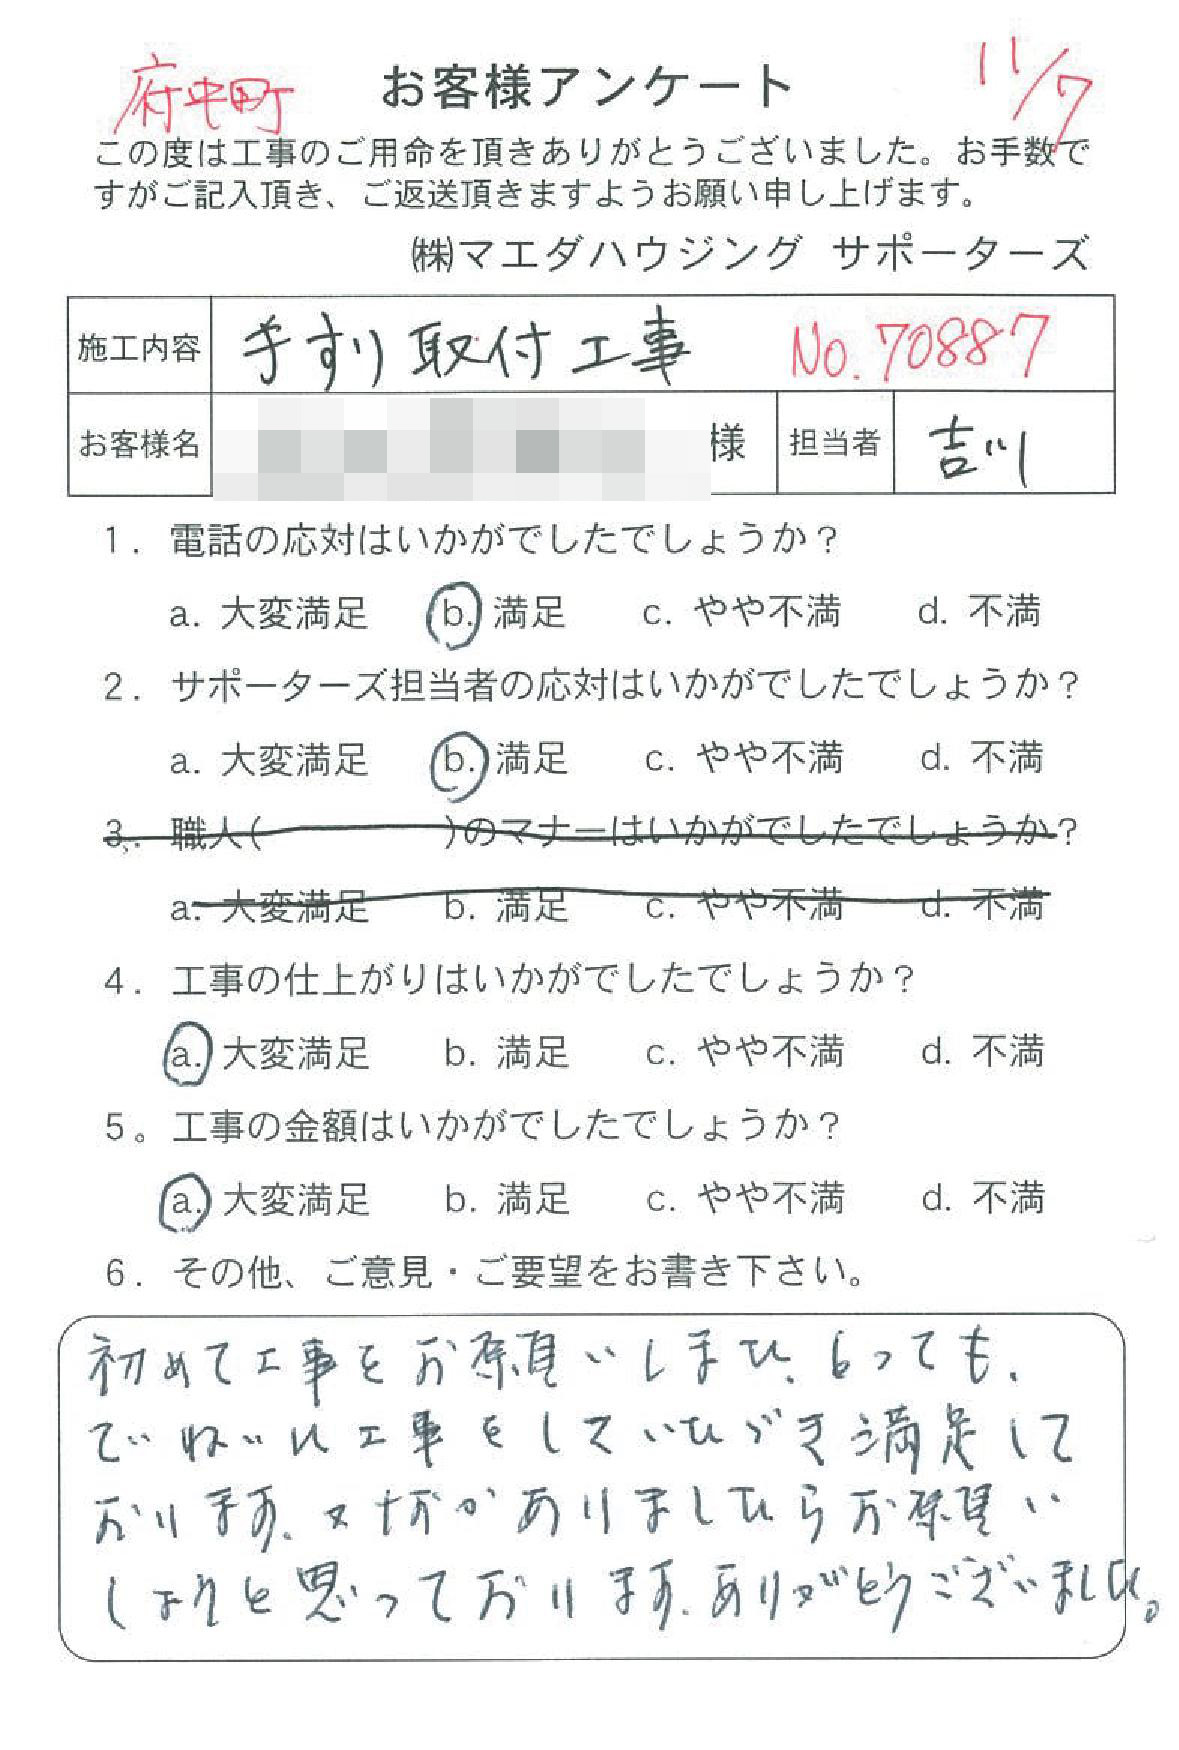 府中町
お客様アンケート
11/7
この度は工事のご用命を頂きありがとうございました。お手数で
すがご記入頂き、ご返送頂きますようお願い申し上げます。
㈱マエダハウジング サポーターズ
施工内容 手すり取付工事 No.70887
お客様名 様 担当者 吉川
1. 電話の応対はいかがでしたでしょうか？
a. 大変満足 b. 満足 c. やや不満 d. 不満
2. サポーターズ担当者の応対はいかがでしたでしょうか？
a. 大変満足 b. 満足 c. やや不満 d. 不満
3. 職人( )のマナーはいかがでしたでしょうか？
a. 大変満足 b. 満足 c. やや不満 d. 不満
4. 工事の仕上がりはいかがでしたでしょうか？
a. 大変満足 b. 満足 c. やや不満 d. 不満
5。工事の金額はいかがでしたでしょうか？
a. 大変満足 b. 満足 c. やや不満 d. 不満
6. その他、ご意見・ご要望をお書き下さい。
初めて工事をお願いしました、とっても、
ていねいに工事をしていただき満足して
おります。又なにかありましたらお願い
しようと思っております。ありがとうございました。